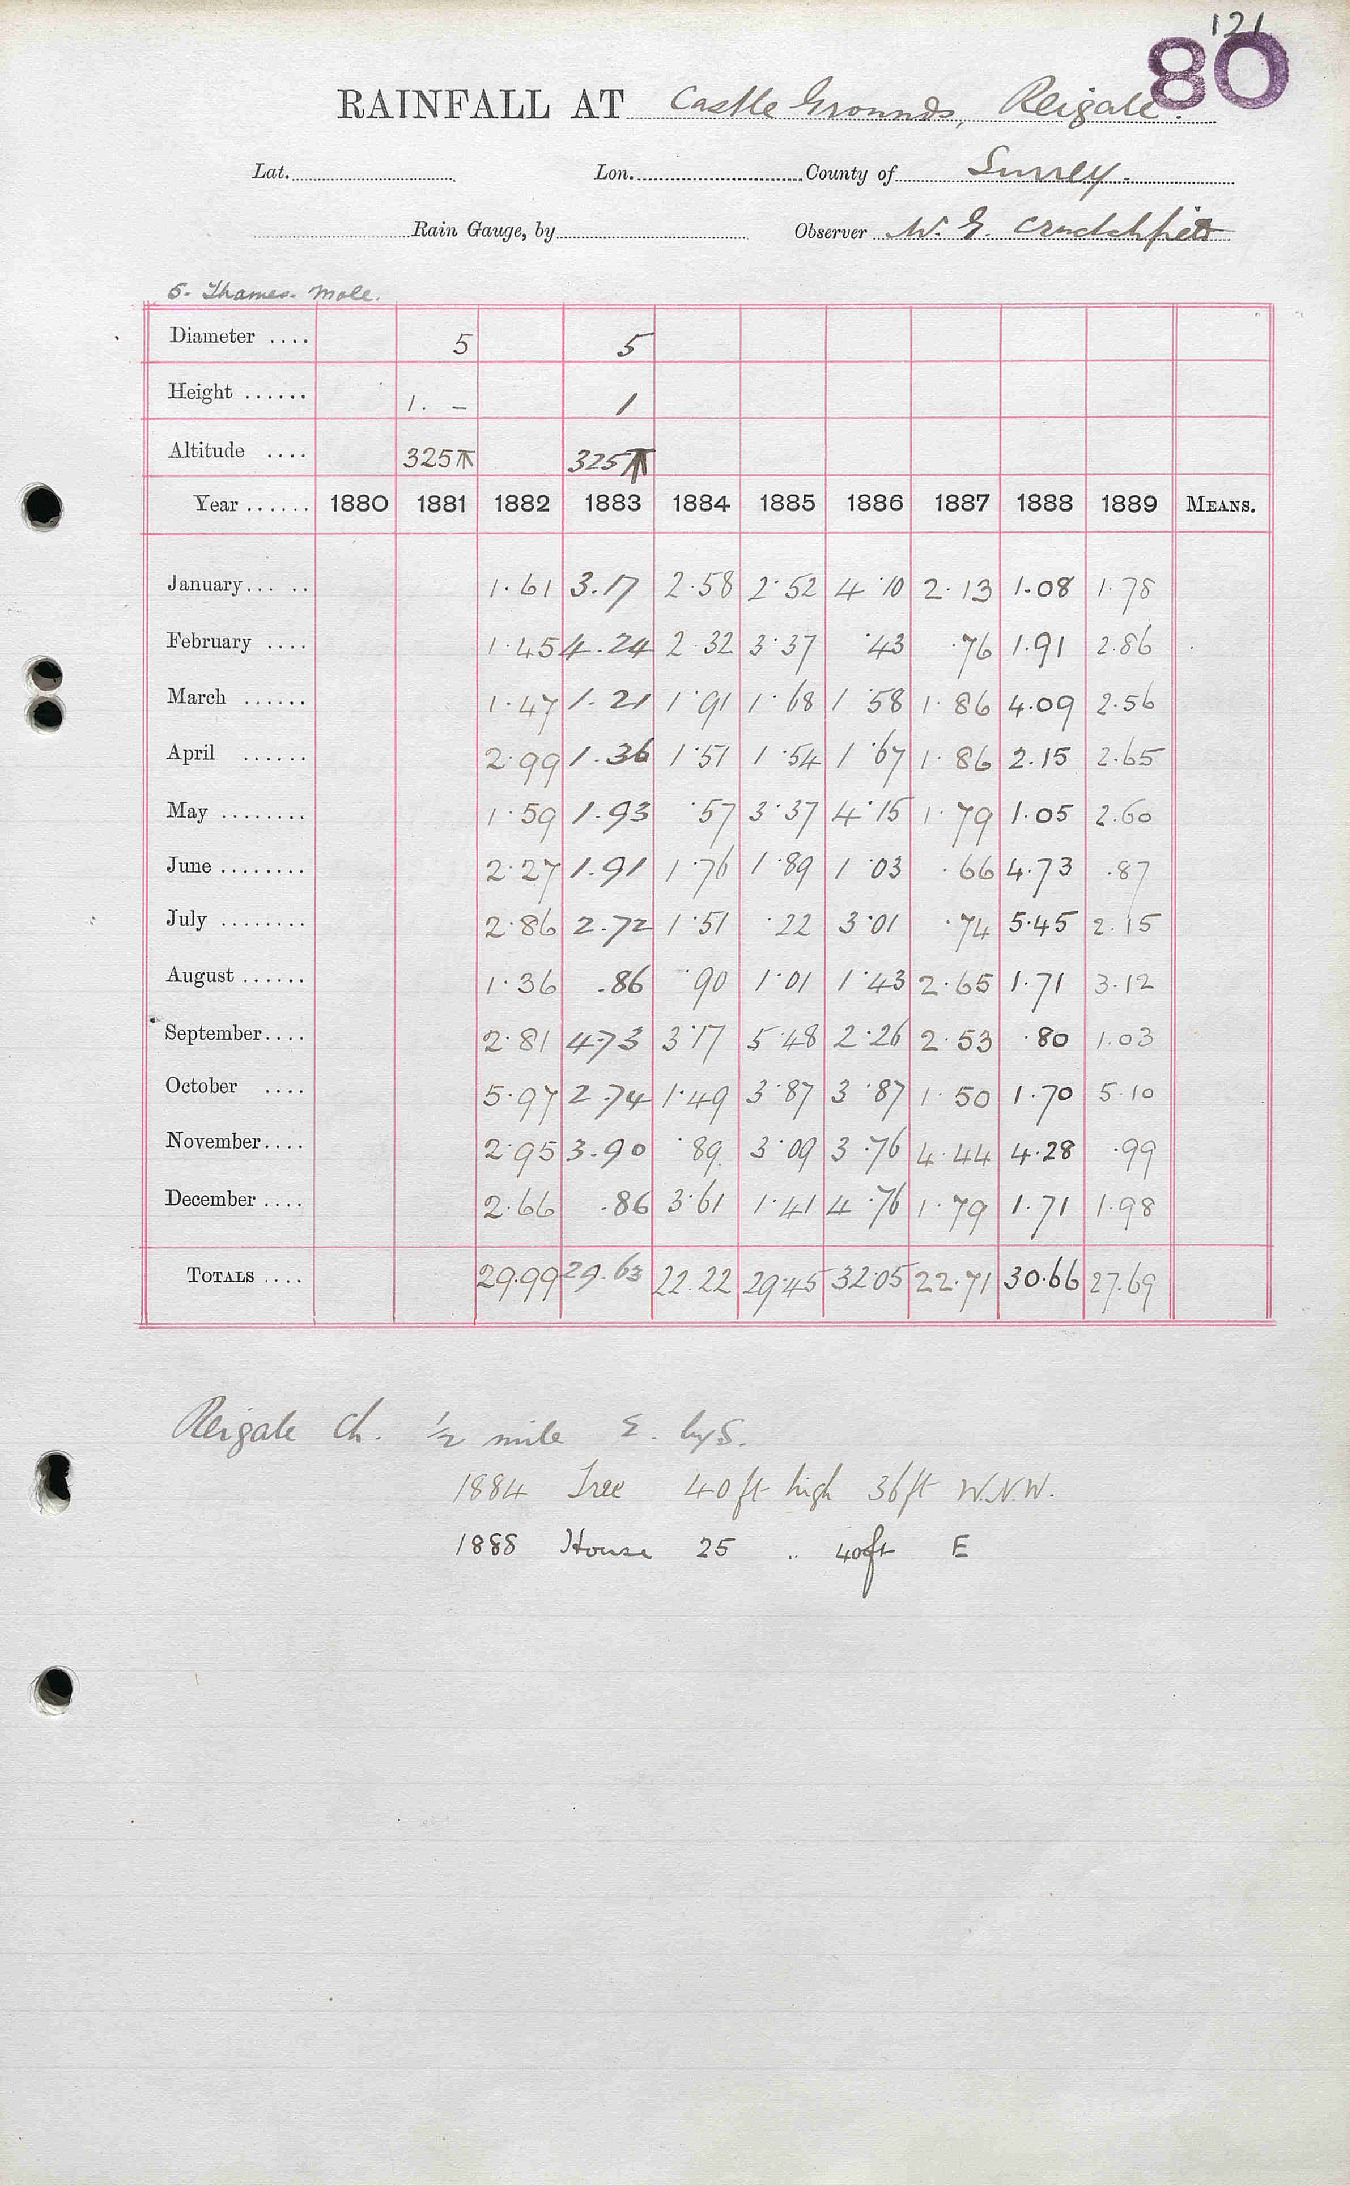 121
80
RAINFALL AT Castle Grounds, Reigate.
Lat. Lon. County of Surrey.
Rain Gauge, by Observer W. G. Crutchfield
5- Thames- Mole.
Diameter .... 5 5
Height ...... 1. - 1
Altitude .... 325 325
Year ...... 1880 1881 1882 1883 1884 1885 1886 1887 1888 1889 MEANS.
January...... 1.61 3.17 2.58 2.52 4.10 2.13 1.08 1.78
February .... 1.45 4.24 2.32 3.37 .43 .76 1.91 2.86
March ...... 1.47 1.21 1.91 1.68 1.58 1.86 4.09 2.56
April ...... 2.99 1.36 1.51 1.54 1.67 1.86 2.15 2.65
May ........ 1.59 1.93 .57 3.37 4.15 1.79 1.05 2.60
June ........ 2.27 1.91 1.76 1.89 1.03 .66 4.73 .87
July ........ 2.86 2.72 1.51 .22 3.01 .74 5.45 2.15
August ...... 1.36 .86 .90 1.01 1.43 2.65 1.71 3.12
September.... 2.81 4.73 3.17 5.48 2.26 2.53 .80 1.03
October .... 5.97 2.74 1.49 3.87 3.87 1.50 1.70 5.10
November.... 2.95 3.90 .89 3.09 3.76 4.44 4.28 .99
December .... 2.66 .86 3.61 1.41 4.76 1.79 1.71 1.98
TOTALS .... 29.99 29.63 22.22 29.45 32.05 22.71 30.66 27.69
Reigate Ch. 1/2 mile E. by S.
1884 Tree 40 ft high 36 ft W.N.W.
1888 House 25 .. 40ft E